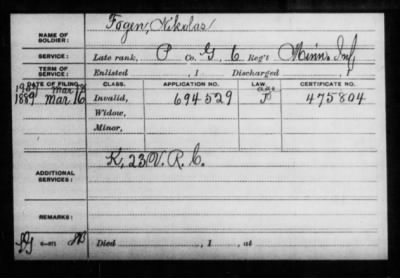 NAME OF SOLDIER: Fogen, Nikolas
SERVICE: Late rank, P Co. G, 6 Reg't Minn. Inf
TERM OF SERVICE: Enlisted , 1 Discharged , 1
DATE OF FILING. CLASS. APPLICATION NO. LAW. CERTIFICATE NO.
1889 Mar 16 Invalid, 694529 475804
Widow,
Minor,
ADDITIONAL SERVICES: K, 23 V. R. C.
REMARKS:
Died , 1 , at